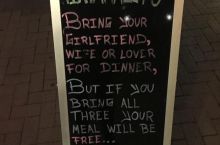 BRING YOUR
GIRLFRIEND,
WIFE OR LOVER
FOR DINNER,
BUT IF YOU
BRING ALL
THREE YOUR
MEAL WILL BE
FREE...